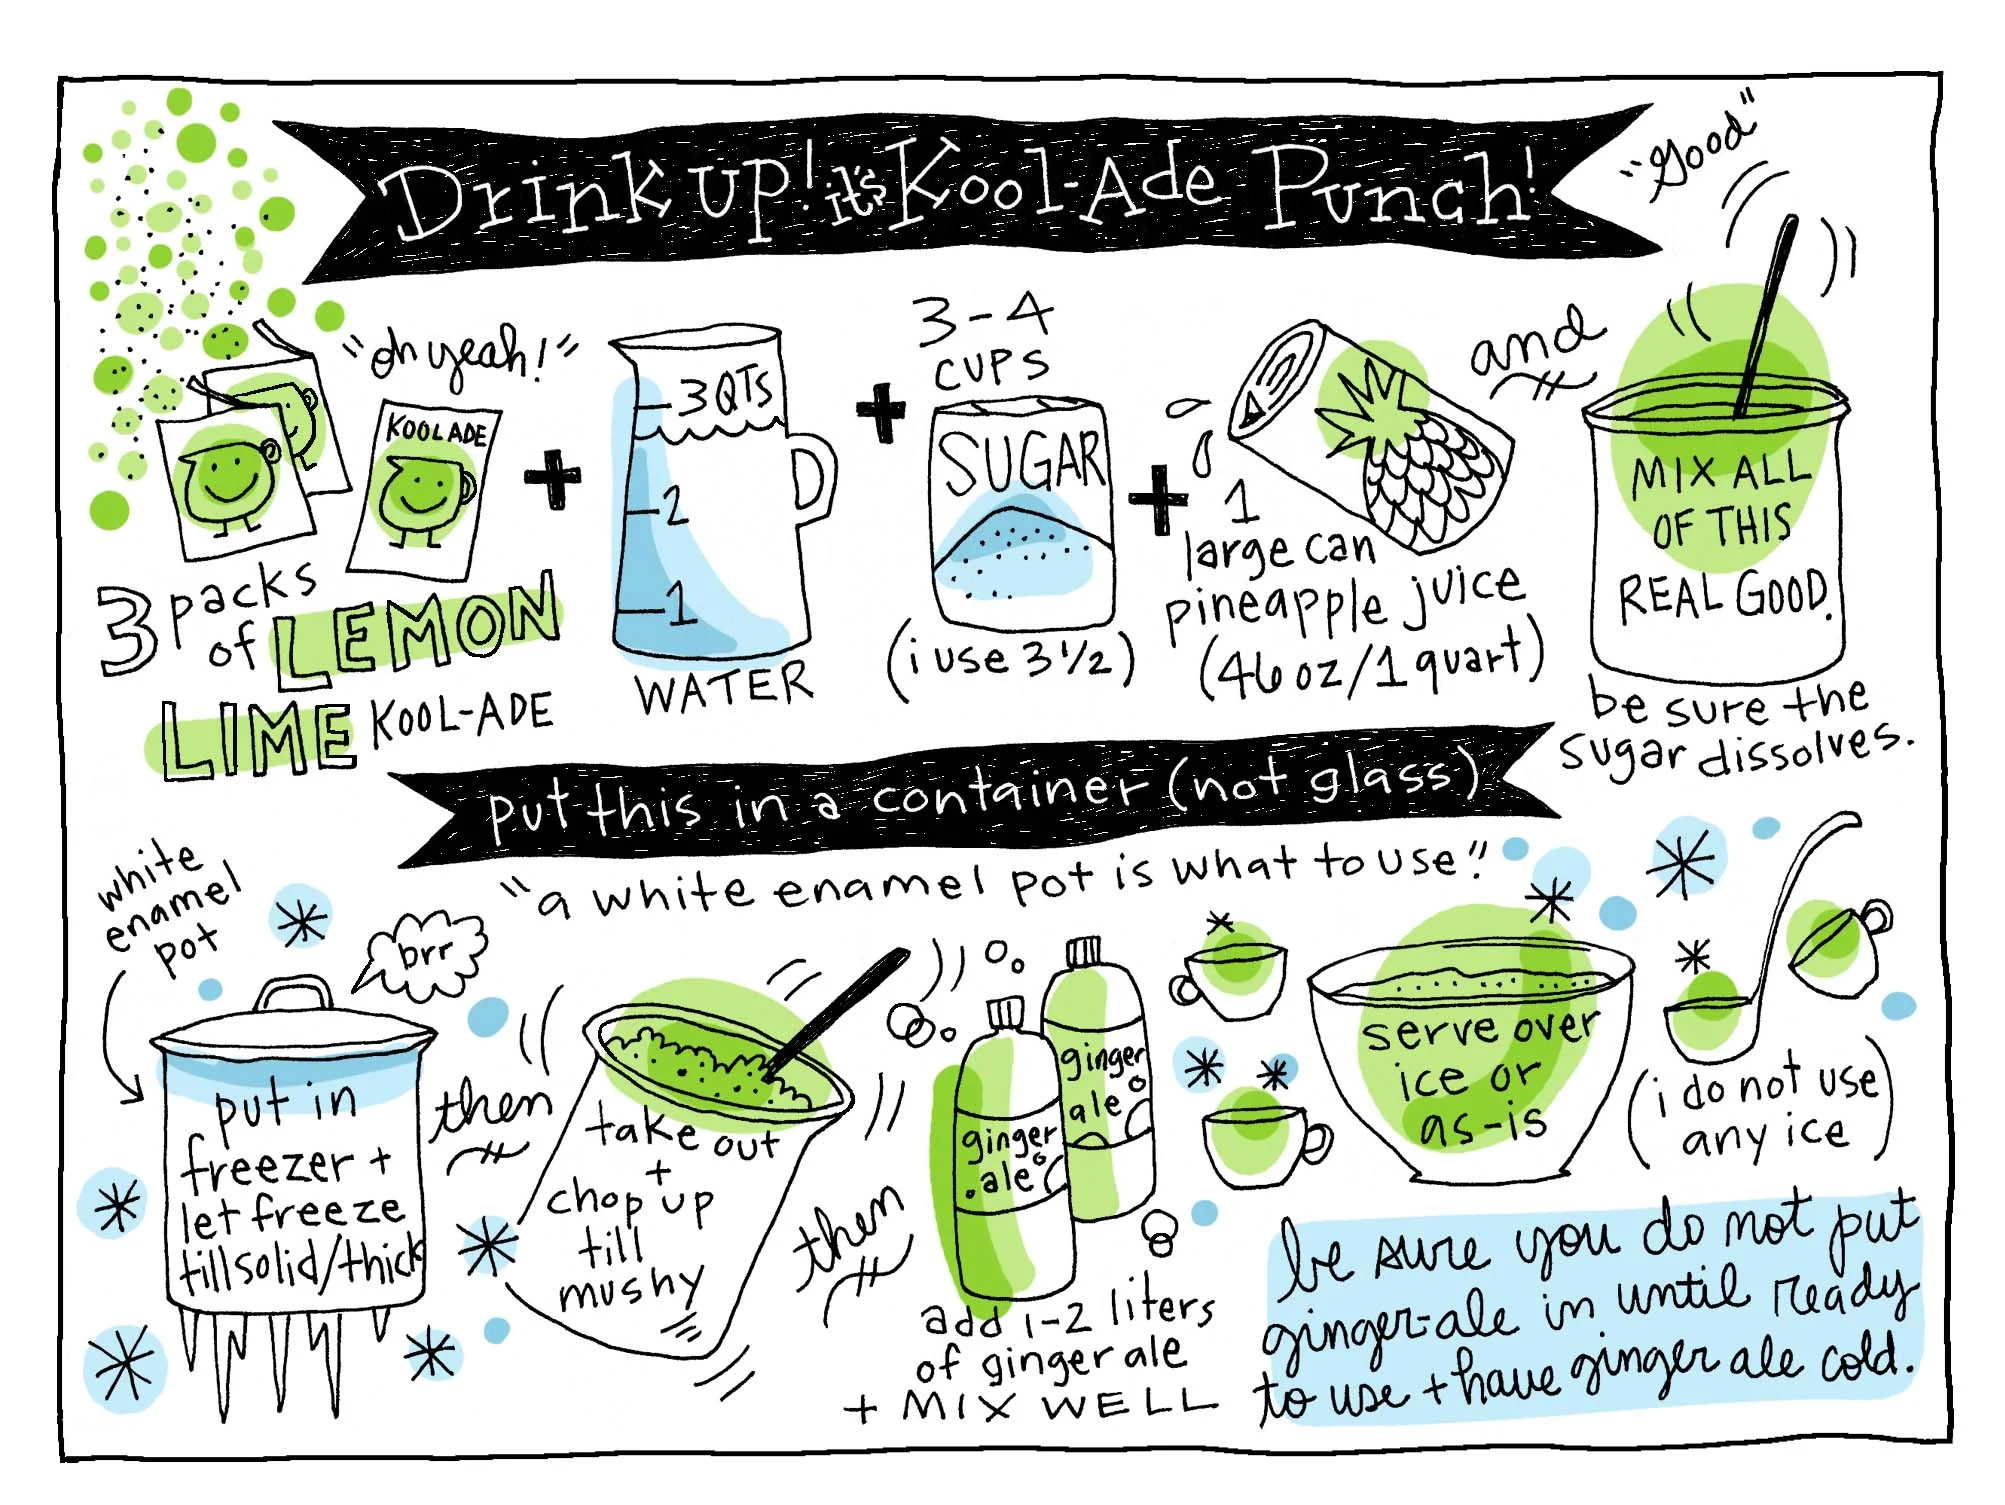 Drink up! it's Kool-Ade Punch!
"good"
"oh yeah!"
KOOLADE
3 packs
of LEMON
LIME KOOL-ADE
+
3QTs
2
1
WATER
+
3-4
CUPS
SUGAR
(i use 3 1/2)
+
1
large can
pineapple juice
(46 oz/1 quart)
and
MIX ALL
OF THIS
REAL GOOD.
be sure the
sugar dissolves.
put this in a container (not glass)
"a white enamel pot is what to use."
white
enamel
pot
brr
put in
freezer +
let freeze
till solid/thick
then
take out
+
chop up
till
mushy
then
ginger
ale
ginger
ale
add 1-2 liters
of ginger ale
+ MIX WELL
serve over
ice or
as-is
(i do not use
any ice)
be sure you do not put
ginger-ale in until ready
to use + have ginger ale cold.